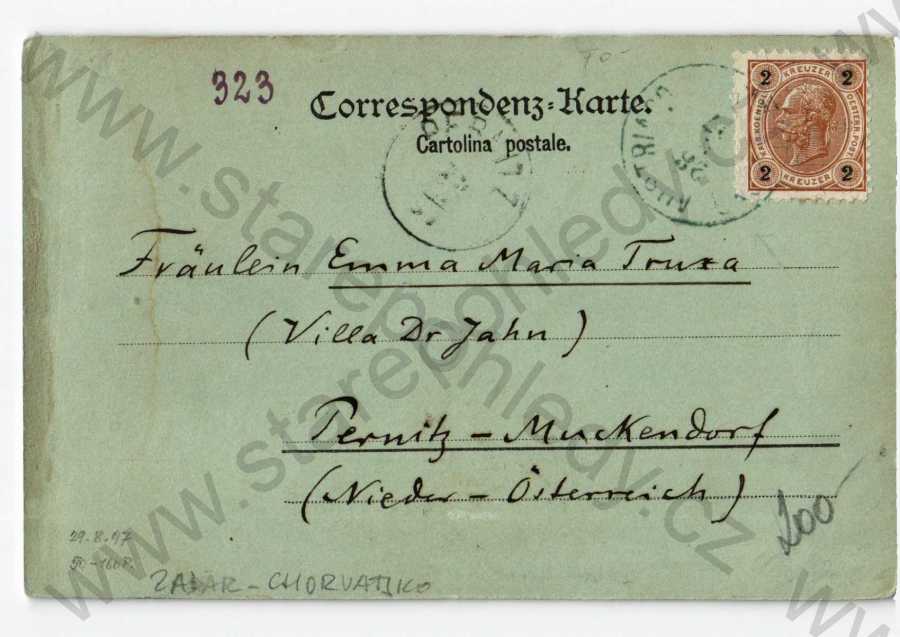 323
Correspondenz-Karte.
Cartolina postale.
PERNITZ
2 KREUZER 2
2 KREUZER 2
Fräulein Emma Maria Truxa
(Villa Dr Jahn)
Pernitz - Muckendorf
(Nieder - Österreich)
200
29.8.97
50-160P.
ZADAR - CHORVATSKO
www.starepohledy.cz
www.starepohledy.cz